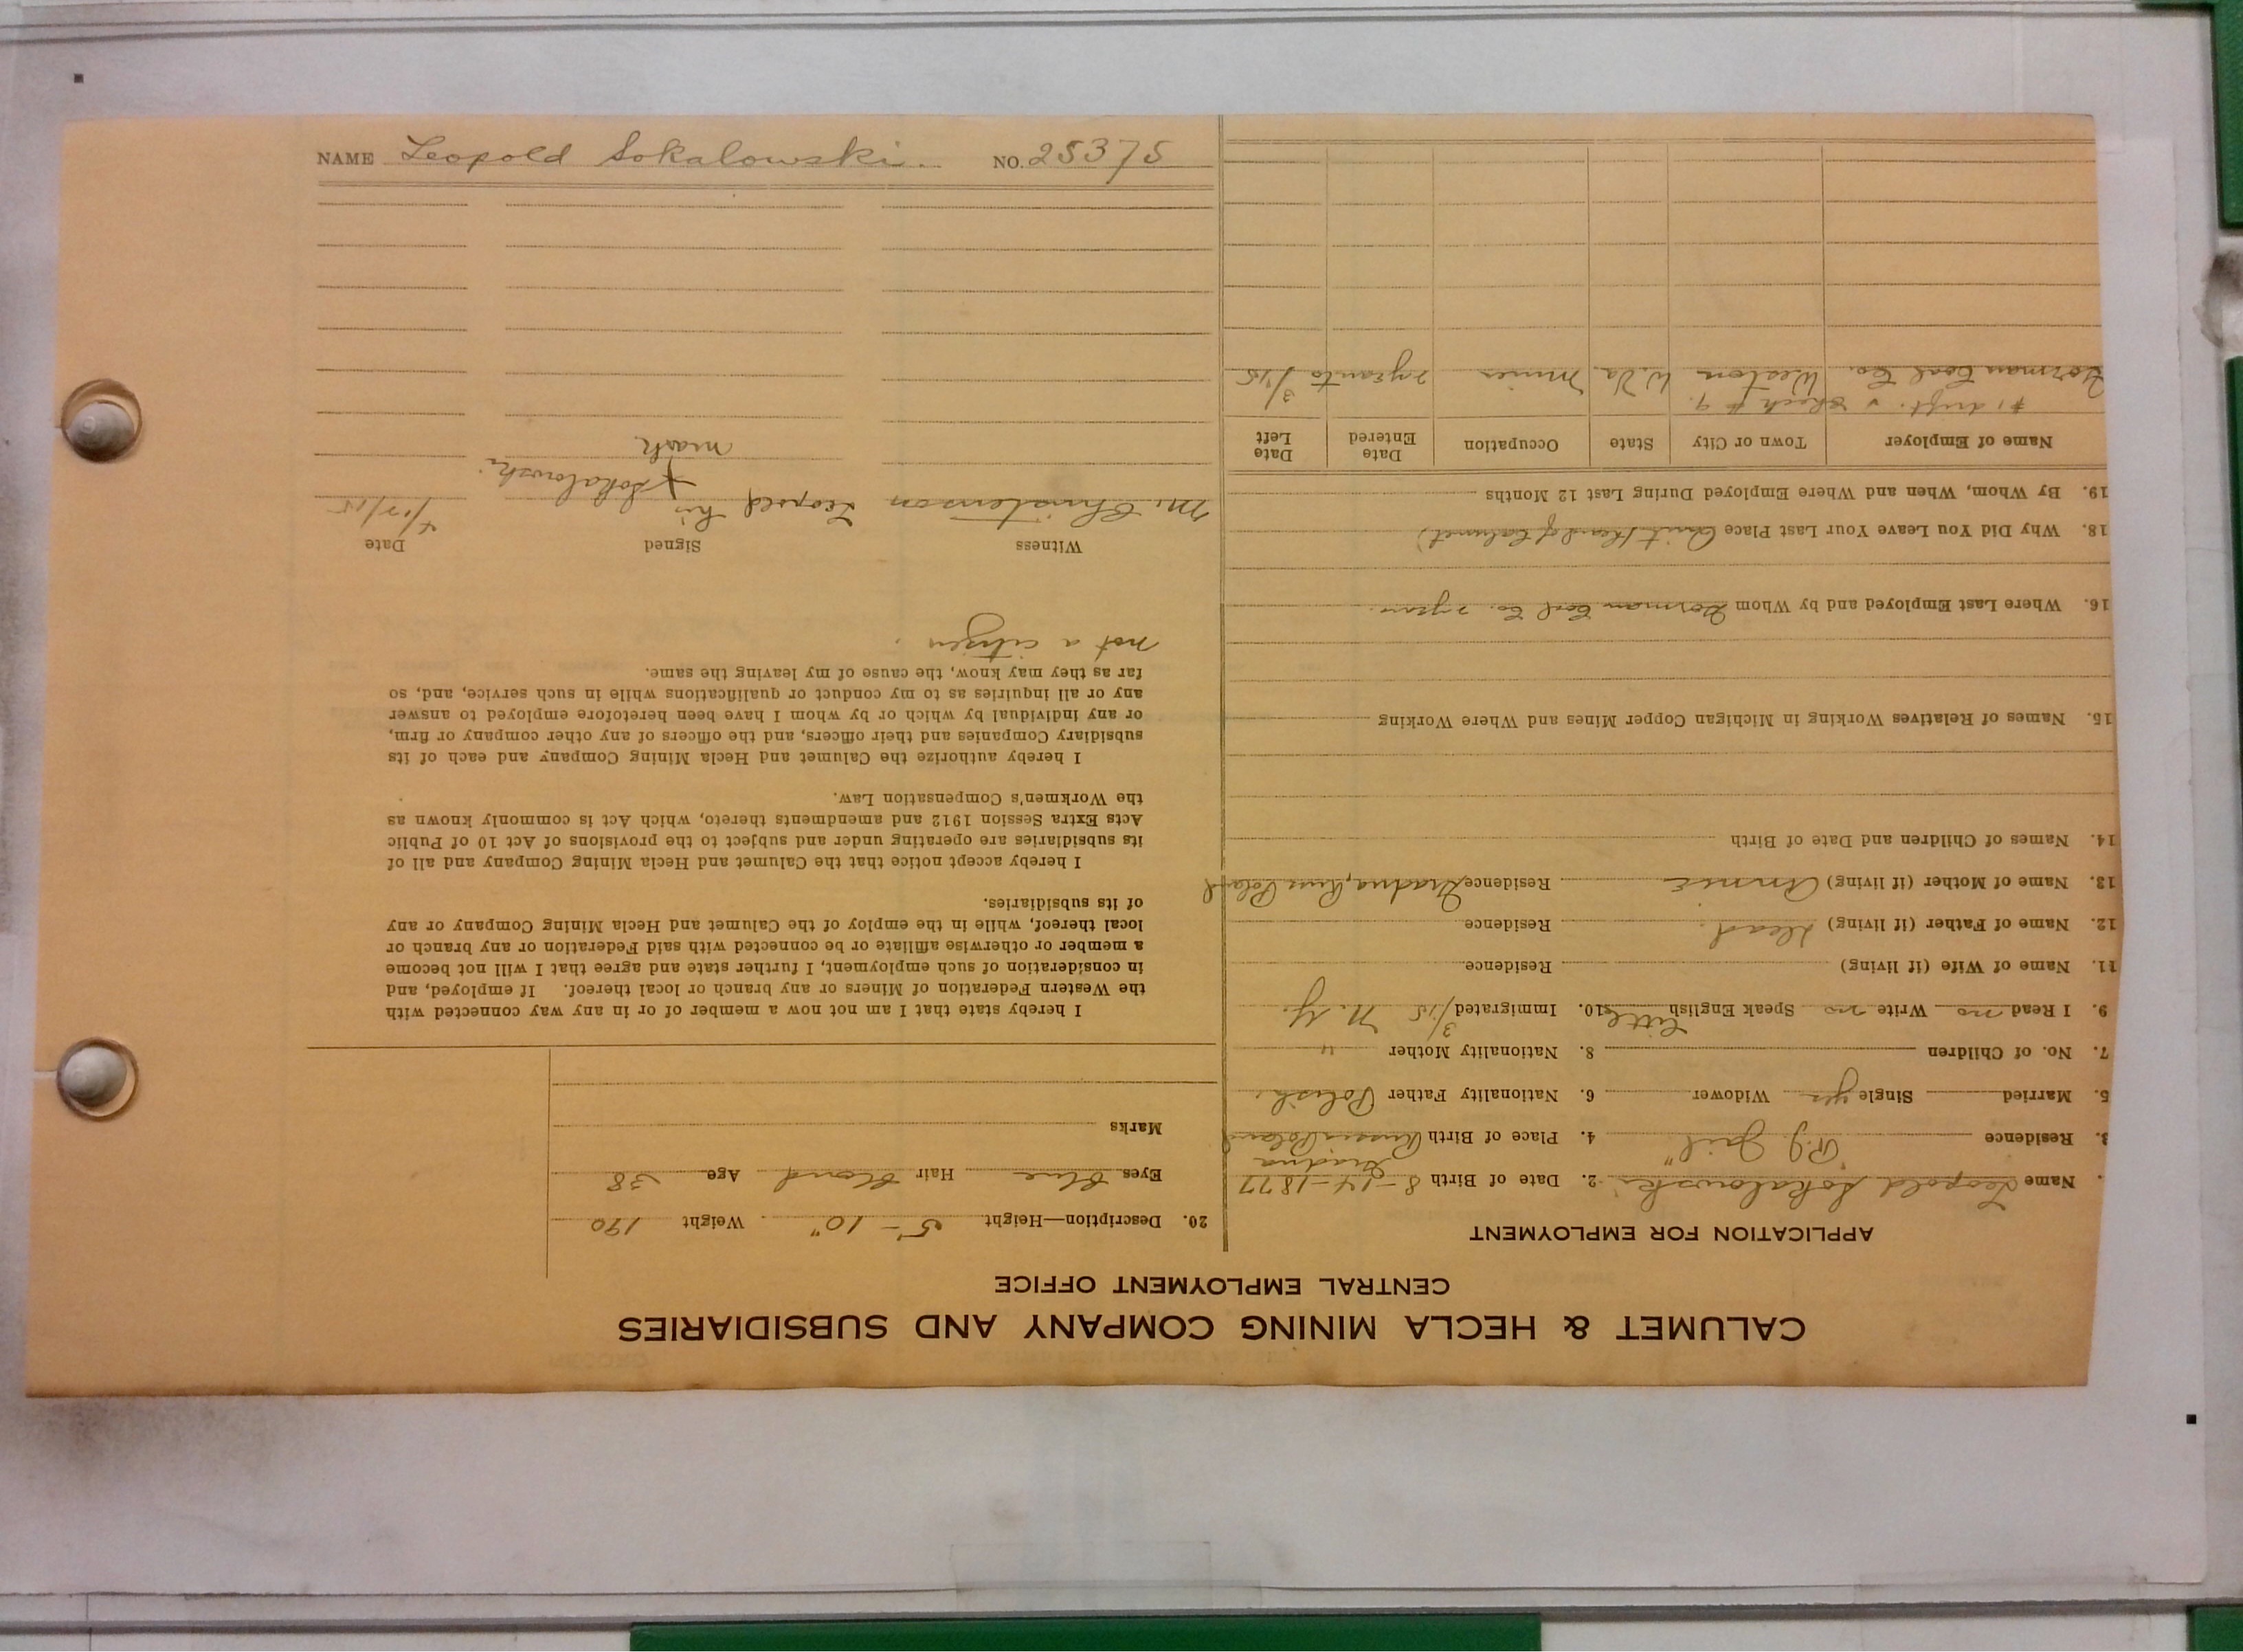 CALUMET & HECLA MINING COMPANY AND SUBSIDIARIES
CENTRAL EMPLOYMENT OFFICE
APPLICATION FOR EMPLOYMENT
. Name Leopold Sokalowski 2. Date of Birth 8-14-1877
3. Residence "R.J. Jail" 4. Place of Birth Gradna Russia Poland
5. Married Single yes Widower 6. Nationality Father Polish
7. No. of Children 8. Nationality Mother "
9. I Read no Write no Speak English Little 10. Immigrated 3/15 N.Y.
11. Name of Wife (if living) Residence
12. Name of Father (if living) Dead. Residence
13. Name of Mother (if living) Annie Residence Gradna, Russ Poland
14. Names of Children and Date of Birth
15. Names of Relatives Working in Michigan Copper Mines and Where Working
16. Where Last Employed and by Whom Coal Co. 2 years.
18. Why Did You Leave Your Last Place Quit (Heard of Calumet)
19. By Whom, When and Where Employed During Last 12 Months
Name of Employer Town or City State Occupation Date Entered Date Left
#1 drift. Check # 9.
Coal Co. Weston W.Va. Miner 2 years to 3/15
20. Description—Height 5'-10" Weight 190
Eyes Blue Hair Blond Age 38
Marks
I hereby state that I am not now a member of or in any way connected with
the Western Federation of Miners or any branch or local thereof. If employed, and
in consideration of such employment, I further state and agree that I will not become
a member or otherwise affiliate or be connected with said Federation or any branch or
local thereof, while in the employ of the Calumet and Hecla Mining Company or any
of its subsidiaries.
I hereby accept notice that the Calumet and Hecla Mining Company and all of
its subsidiaries are operating under and subject to the provisions of Act 10 of Public
Acts Extra Session 1912 and amendments thereto, which Act is commonly known as
the Workmen's Compensation Law.
I hereby authorize the Calumet and Hecla Mining Company and each of its
subsidiary Companies and their officers, and the officers of any other company or firm,
or any individual by which or by whom I have been heretofore employed to answer
any or all inquiries as to my conduct or qualifications while in such service, and, so
far as they may know, the cause of my leaving the same.
not a citizen.
Witness Signed Date
M. Christenson Leopold his x mark Sokalowski. 4/17/15
NAME Leopold Sokalowski. NO. 25375